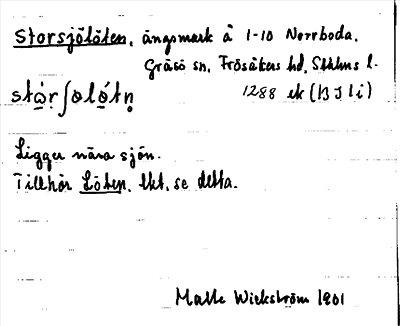 Storsjölöten, ängsmark å 1-10 Norrboda,
Gräsö sn, Frösåkers hd, Sthlms l.
1288 ek (B J l i)
Ligger nära sjön.
Tillhör Löten, lkt, se detta.
Malte Wickström 1901